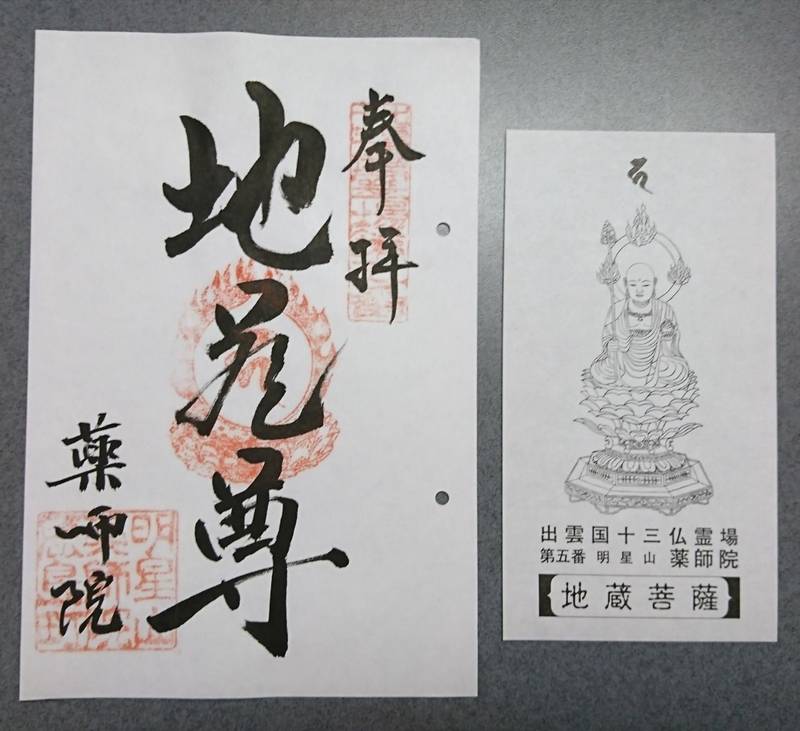 奉拝
地蔵尊
薬师院
明星山
出雲国十三仏霊場
第五番 明星山 薬師院
地蔵菩薩